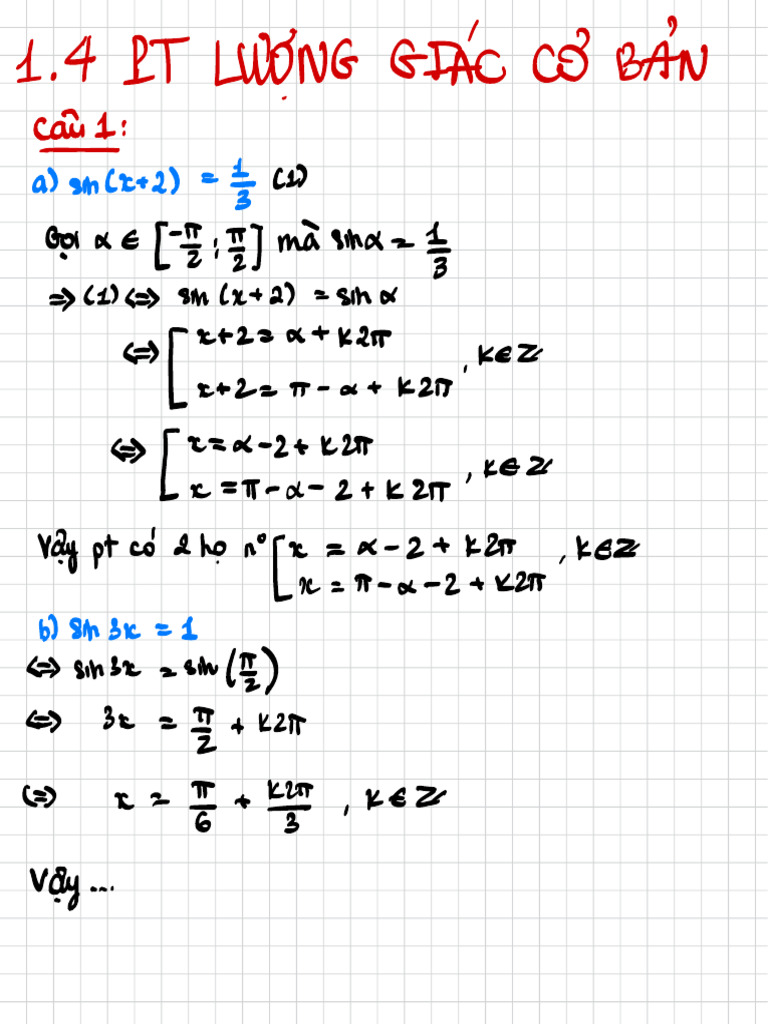 1.4 PT LƯỢNG GIÁC CƠ BẢN
Câu 1:
a) sin(x+2) = 1/3 (1)
Gọi α ∈ [-π/2 ; π/2] mà sinα = 1/3
=> (1) <=> sin(x+2) = sin α
<=> [ x+2 = α + k2π
x+2 = π - α + k2π , k∈Z
<=> [ x = α - 2 + k2π
x = π - α - 2 + k2π , k∈Z
Vậy pt có 2 họ nº [ x = α - 2 + k2π , k∈Z
x = π - α - 2 + k2π
b) sin 3x = 1
<=> sin 3x = sin (π/2)
<=> 3x = π/2 + k2π
<=> x = π/6 + k2π/3 , k ∈ Z
Vậy ...